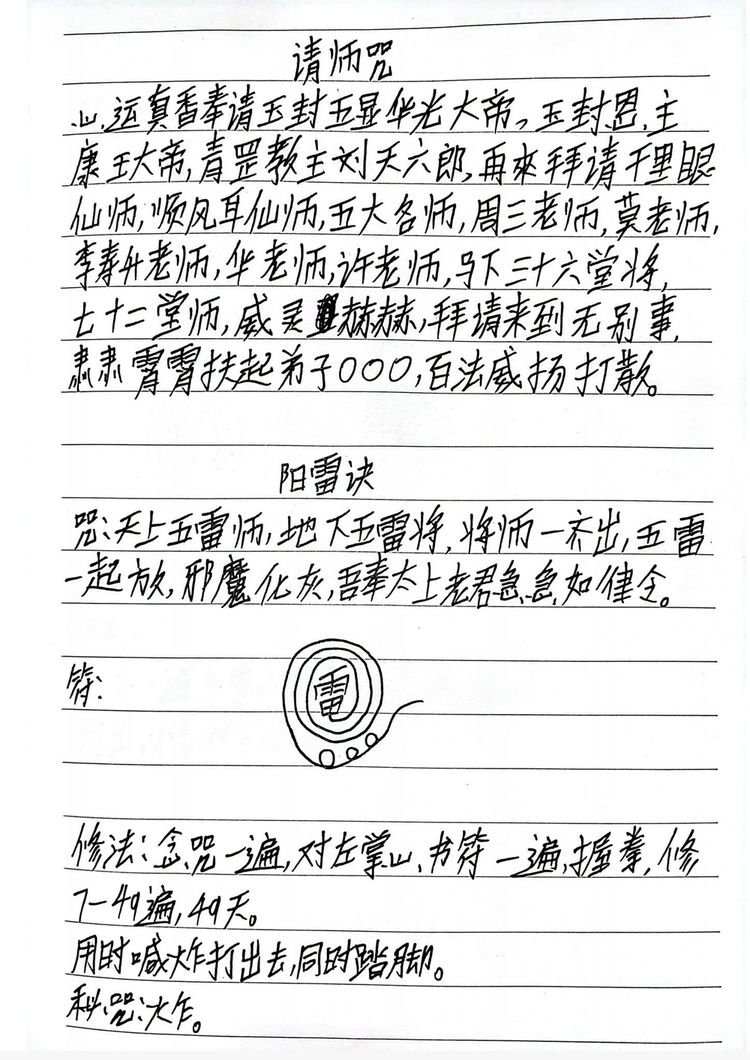 请师咒
心运真香奉请玉封五显华光大帝,玉封恩主
康王大帝,青罡教主刘天六郎,再來拜请千里眼
仙师,顺风耳仙师,五大名师,周三老师,莫老师,
李寿升老师,华老师,许老师,马下三十六堂将,
七十二堂师,威灵赫赫,拜请来到无别事,
肃肃霄霄扶起弟子〇〇〇,百法威扬打散。
阳雷诀
咒:天上五雷师,地下五雷将,将师一齐出,五雷
一起放,邪魔化灰,吾奉太上老君急急如律令。
符:
電
修法:念咒一遍,对左掌心书符一遍,握拳,修
7-49遍,49天。
用时喊炸打出去,同时踏脚。
秘咒:火乍。